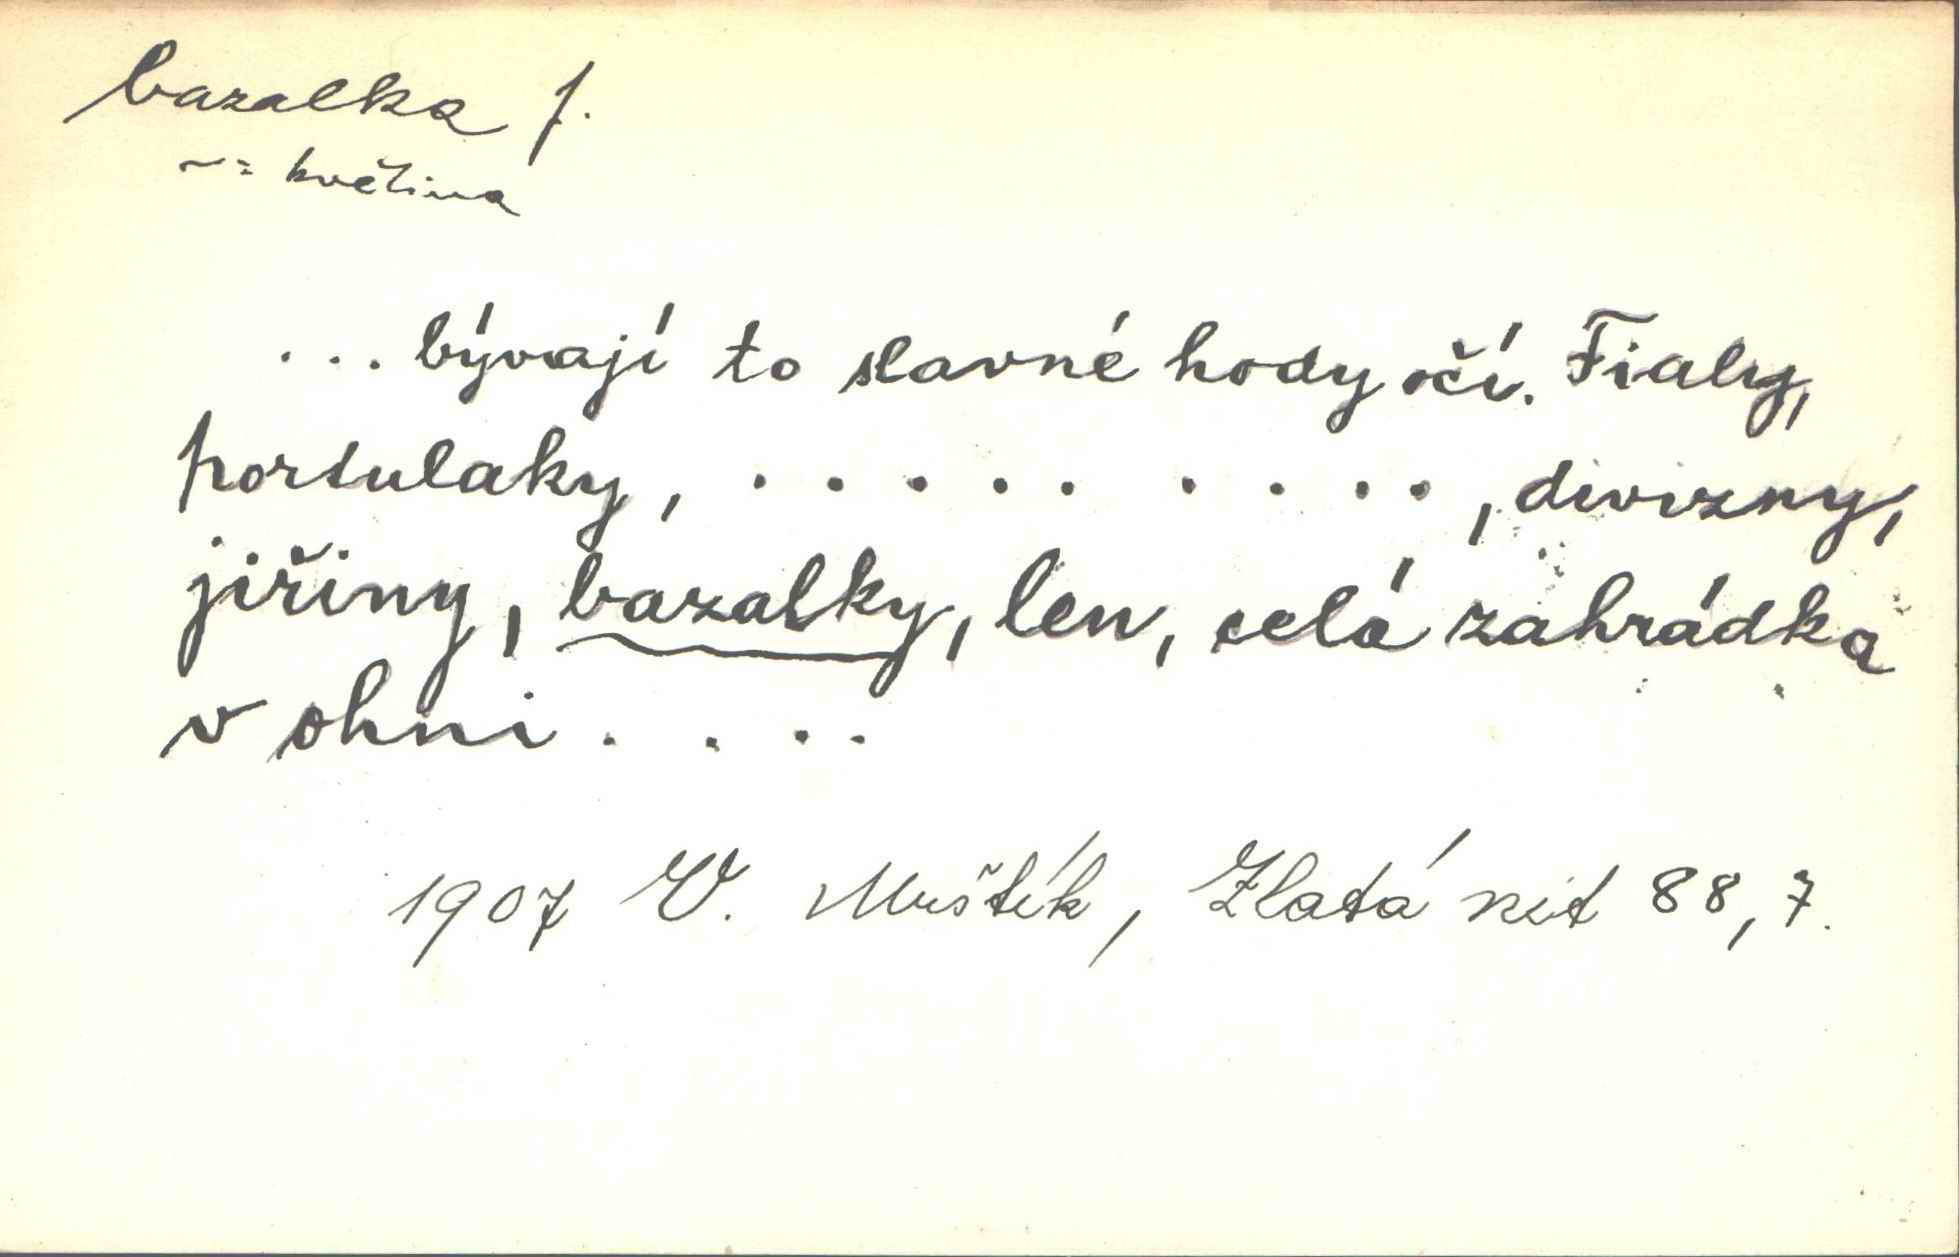 bazalka f.
~ = květina
... bývají to slavné hody očí. Fialy,
portulaky, . . . . . . . . . , divizny,
jiřiny, bazalky, len, celá zahrádka
v ohni . . . .
1907 V. Mrštík, Zlatá nit 88, 7.